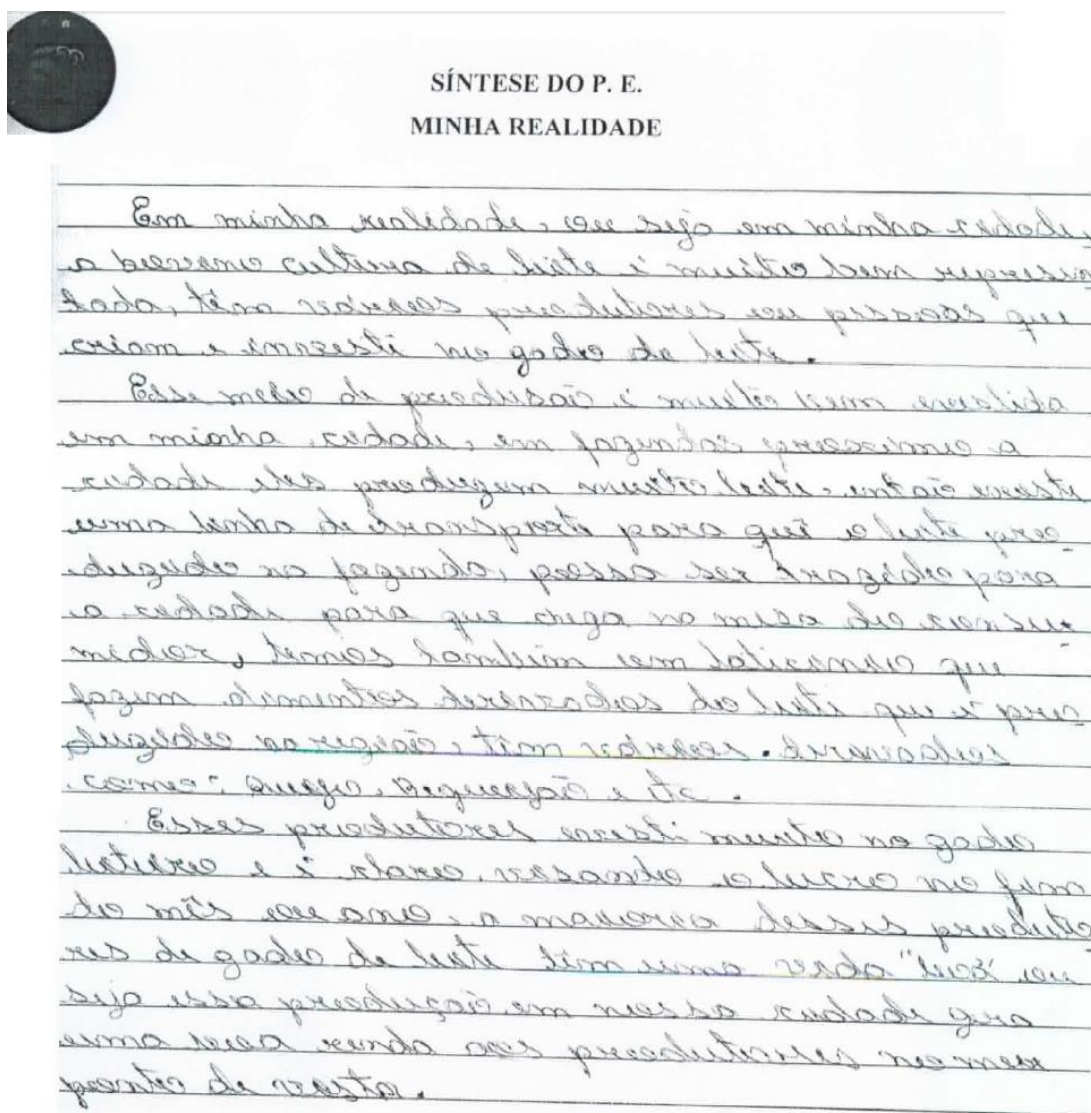 SÍNTESE DO P. E.
MINHA REALIDADE
Em minha realidade, ou seja em minha cidade,
a bovino cultura de leite é muito bem represen
tada, têm vários produtores ou pessoas que
criam e investi no gado de leite.
Esse meio de produsão é muito bem
em minha cidade, em fazendas proximo a
cidade eles produzem muito leite, então existe
uma linha de transporte para que o leite pro-
duzido na fazenda, possa ser trazido para
a cidade para que chega na mesa do consu-
midor, temos também um laticinio que
fazem alimentos derivados do leite que é pro-
duzido na região, têm vários derivados
como: Queijo, Requeijão e etc.
Esses produtores investi muito no gado
leiteiro e é claro, visando o lucro no fim
do mês ou ano, a maioria desses produto
res de gado de leite têm uma vida "boa" ou
seja essa produção em nossa cidade gera
uma boa renda aos produtores no meu
ponto de vista.